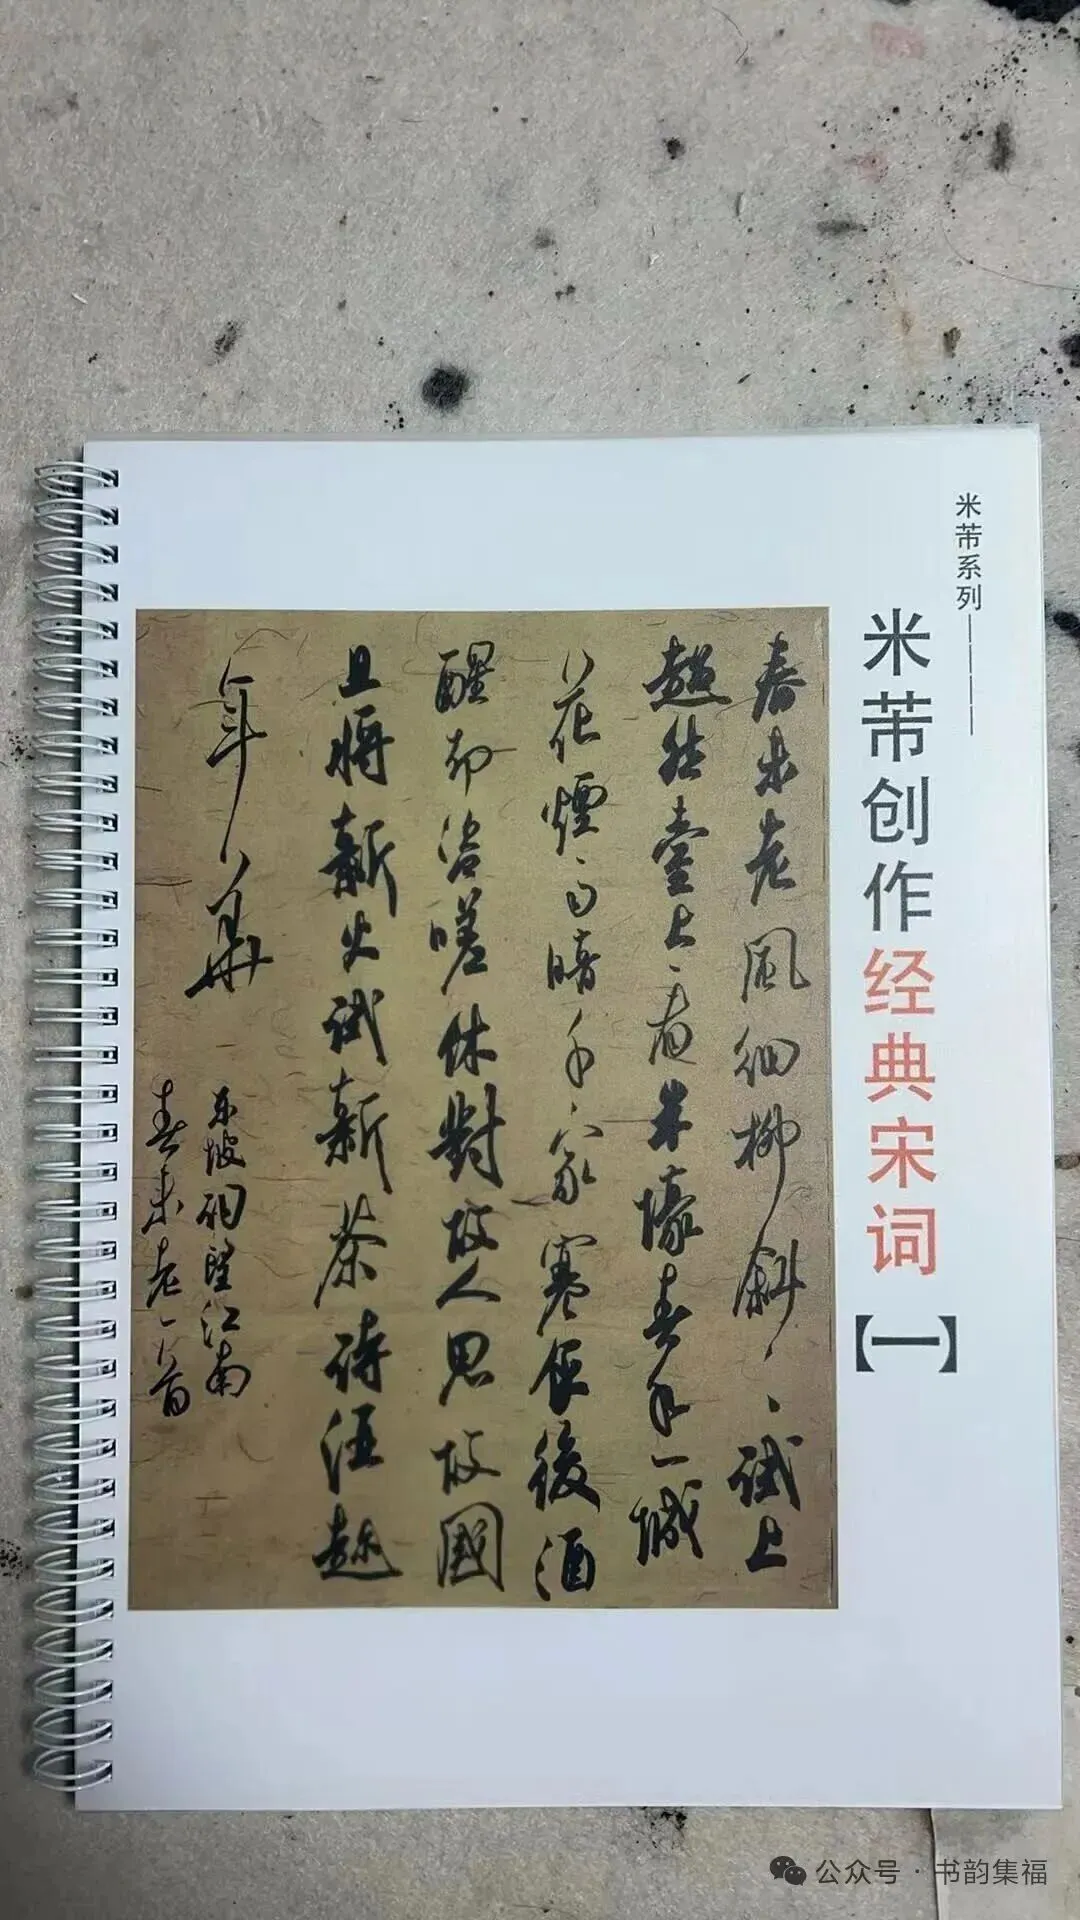 米芾系列————
米芾创作经典宋词【一】
春未老風細柳斜々試上
超然臺上看半壕春水一城
花煙雨暗千家寒食後酒
醒却咨嗟休對故人思故國
且將新火試新茶詩酒趁
年華
東坡詞望江南
春未老一首
公众号·书韵集福